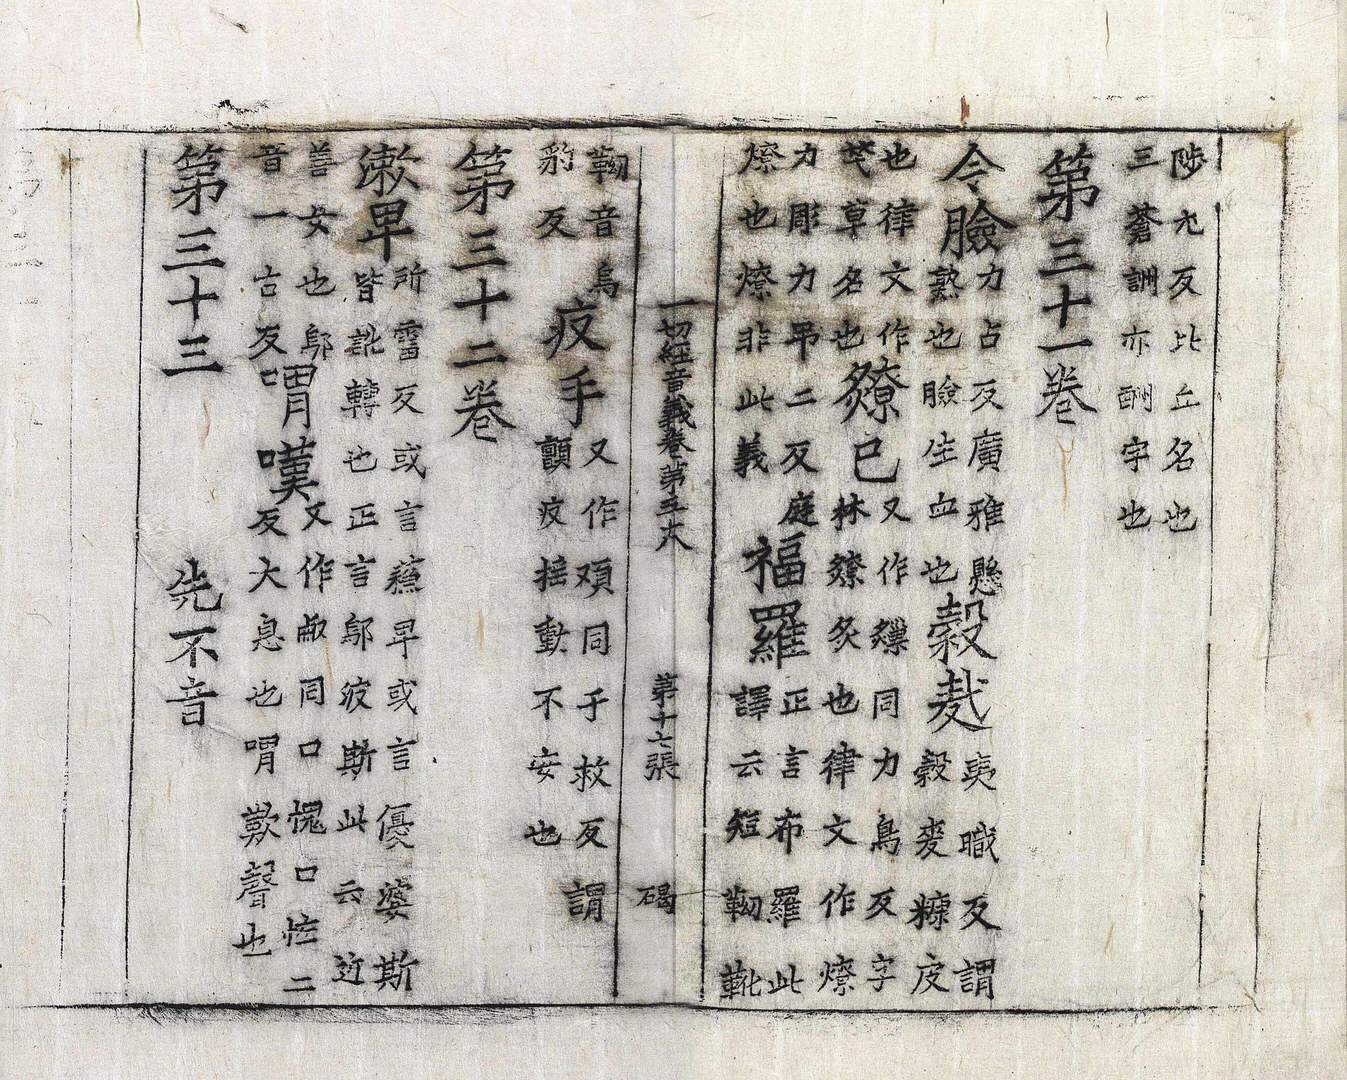 陟尤反比丘名也
三蒼詶亦酬字也
第三十一卷
令臉
力占反廣雅懸
熟也臉生血也
榖麩
夷職反謂
榖麥糠皮
也律文作
草名也
爒已
又作同力鳥反字
林爒炙也律文作燎
力彫力吊二反庭
燎也燎非此義
福羅
正言布羅此
譯云短靿靴
一切經音義卷第 第十七張 碣
靿音烏
豹反
㽱手
又作同于救反謂
顫㽱搖動不安也
第三十二卷
漱早
所霤反或言蘓早或言優婆斯
皆訛轉也正言鄔波斯此云近
善女也鄔
音一古反
喟嘆
又作同口愧口恠二
反大息也喟歎聲也
第三十三 先不音